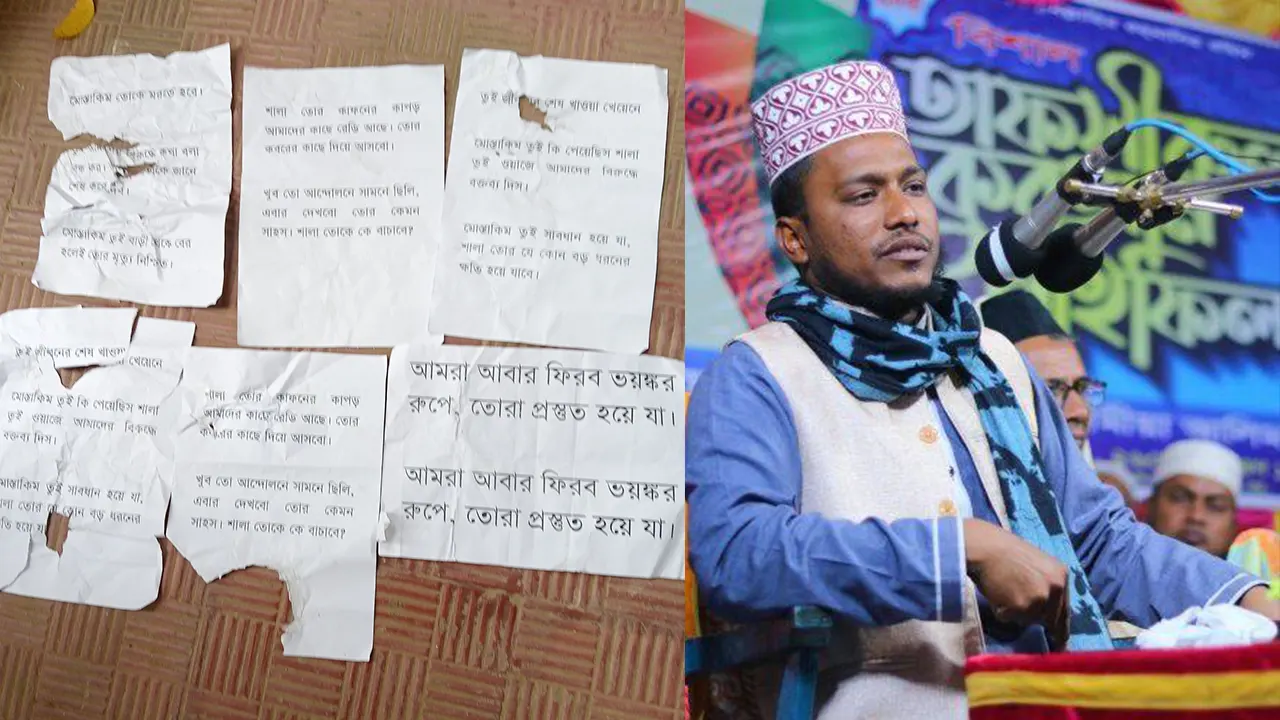 মোস্তাকিম তোকে মরতে হবে।
কথা বলা
বন্ধ কর।
তোকে জানে
শেষ করে দিব।
মোস্তাকিম তুই বাড়ী থেকে বের
হলেই তোর মৃত্যু নিশ্চিত।
শালা তোর কাফনের কাপড়
আমাদের কাছে রেডি আছে। তোর
কবরের কাছে দিয়ে আসবো।
খুব তো আন্দোলনে সামনে ছিলি,
এবার দেখবো তোর কেমন
সাহস। শালা তোকে কে বাচাবে?
তুই জীবনের শেষ খাওয়া খেয়েনে
মোস্তাকিম তুই কি পেয়েছিস শালা
তুই ওয়াজে আমাদের বিরুদ্ধে
বক্তব্য দিস।
মোস্তাকিম তুই সাবধান হয়ে যা,
শালা তোর যে কোন বড় ধরনের
ক্ষতি হয়ে যাবে।
তুই জীবনের শেষ খাওয়া খেয়েনে
মোস্তাকিম তুই কি পেয়েছিস শালা
তুই ওয়াজে আমাদের বিরুদ্ধে
বক্তব্য দিস।
মোস্তাকিম তুই সাবধান হয়ে যা,
শালা তোর যে কোন বড় ধরনের
ক্ষতি হয়ে যা
শালা তোর কাফনের কাপড়
আমাদের কাছে রেডি আছে। তোর
কবরের কাছে দিয়ে আসবো।
খুব তো আন্দোলনে সামনে ছিলি,
এবার দেখবো তোর কেমন
সাহস। শালা তোকে কে বাচাবে?
আমরা আবার ফিরব ভয়ঙ্কর
রুপে, তোরা প্রস্তুত হয়ে যা।
আমরা আবার ফিরব ভয়ঙ্কর
রুপে, তোরা প্রস্তুত হয়ে যা।
বিশাল
তাফসীরুল
কুরআন
মাহফিল